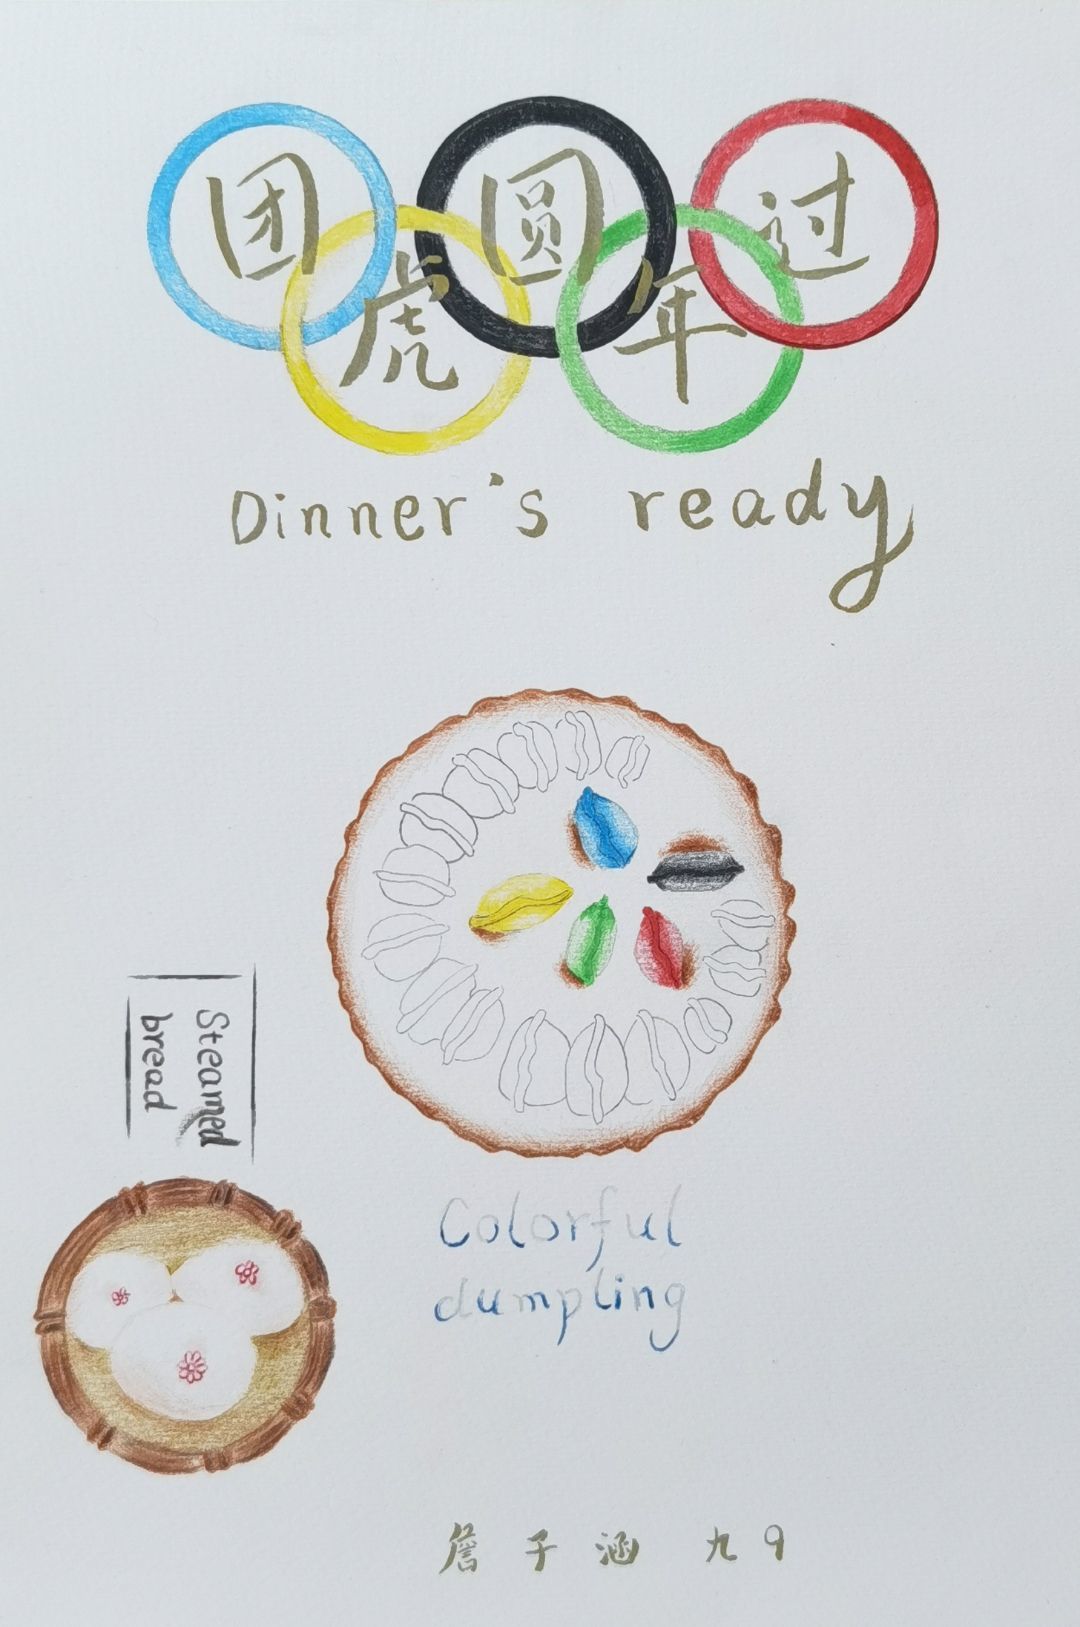 团圆过
虎年
Dinner's ready
Steamed
bread
Colorful
dumpling
詹子涵 九9